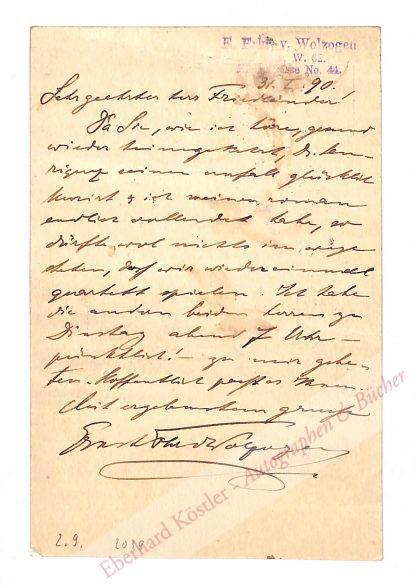 E. Frhr. v. Wolzogen
W. 62.
No. 44.
31. I. 90.
Sehr geehrter Herr Friedländer!
Da Sie, wie ich höre, gesund
wieder heimgekehrt, Dr. Hen-
riques seinen unfall glücklich
kurirt & ich meinen roman
endlich vollendet habe, so
dürfte wol nichts im wege
stehen, dass wir wieder einmal
quartett spielen. Ich habe
die andern beiden herren zu
Dienstag abend 7 Uhr –
pünktlich! – zu mir gebe-
ten. Hoffentlich passt es Ihnen.
Mit ergebenstem gruss
Ernst Frhr v Wolzogen
2.9. 20
Eberhard Köstler - Autographen & Bücher